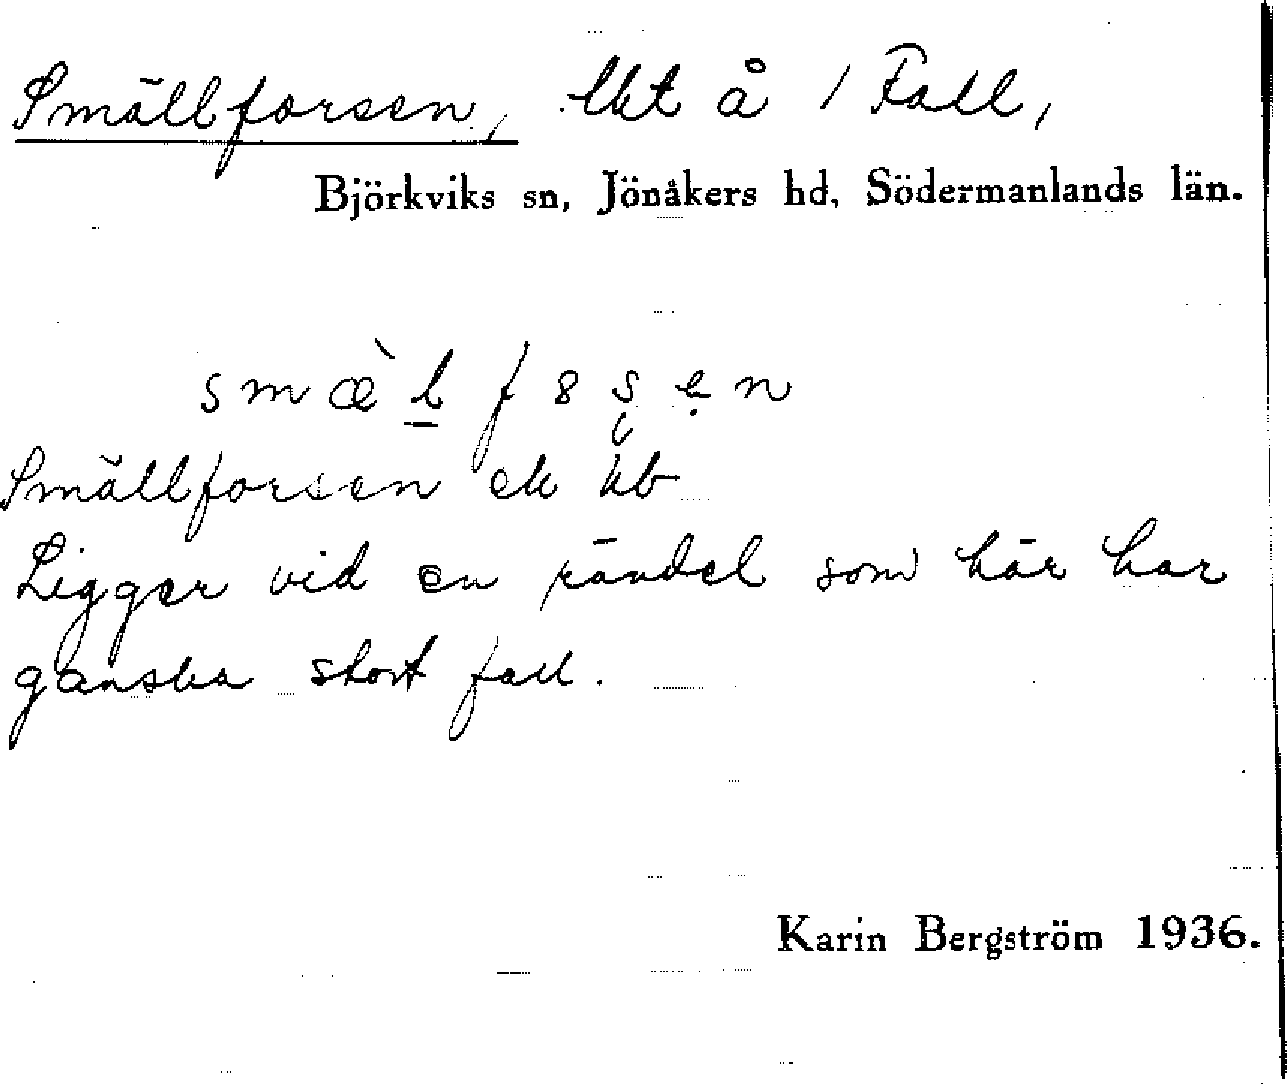 Smällforsen, lht å 1 Fall,
Björkviks sn, Jönåkers hd, Södermanlands län.
smæ̀l̲f8ş ẹn
Smällforsen ek kb
Ligger vid en rändel som här har
ganska stort fall.
Karin Bergström 1936.